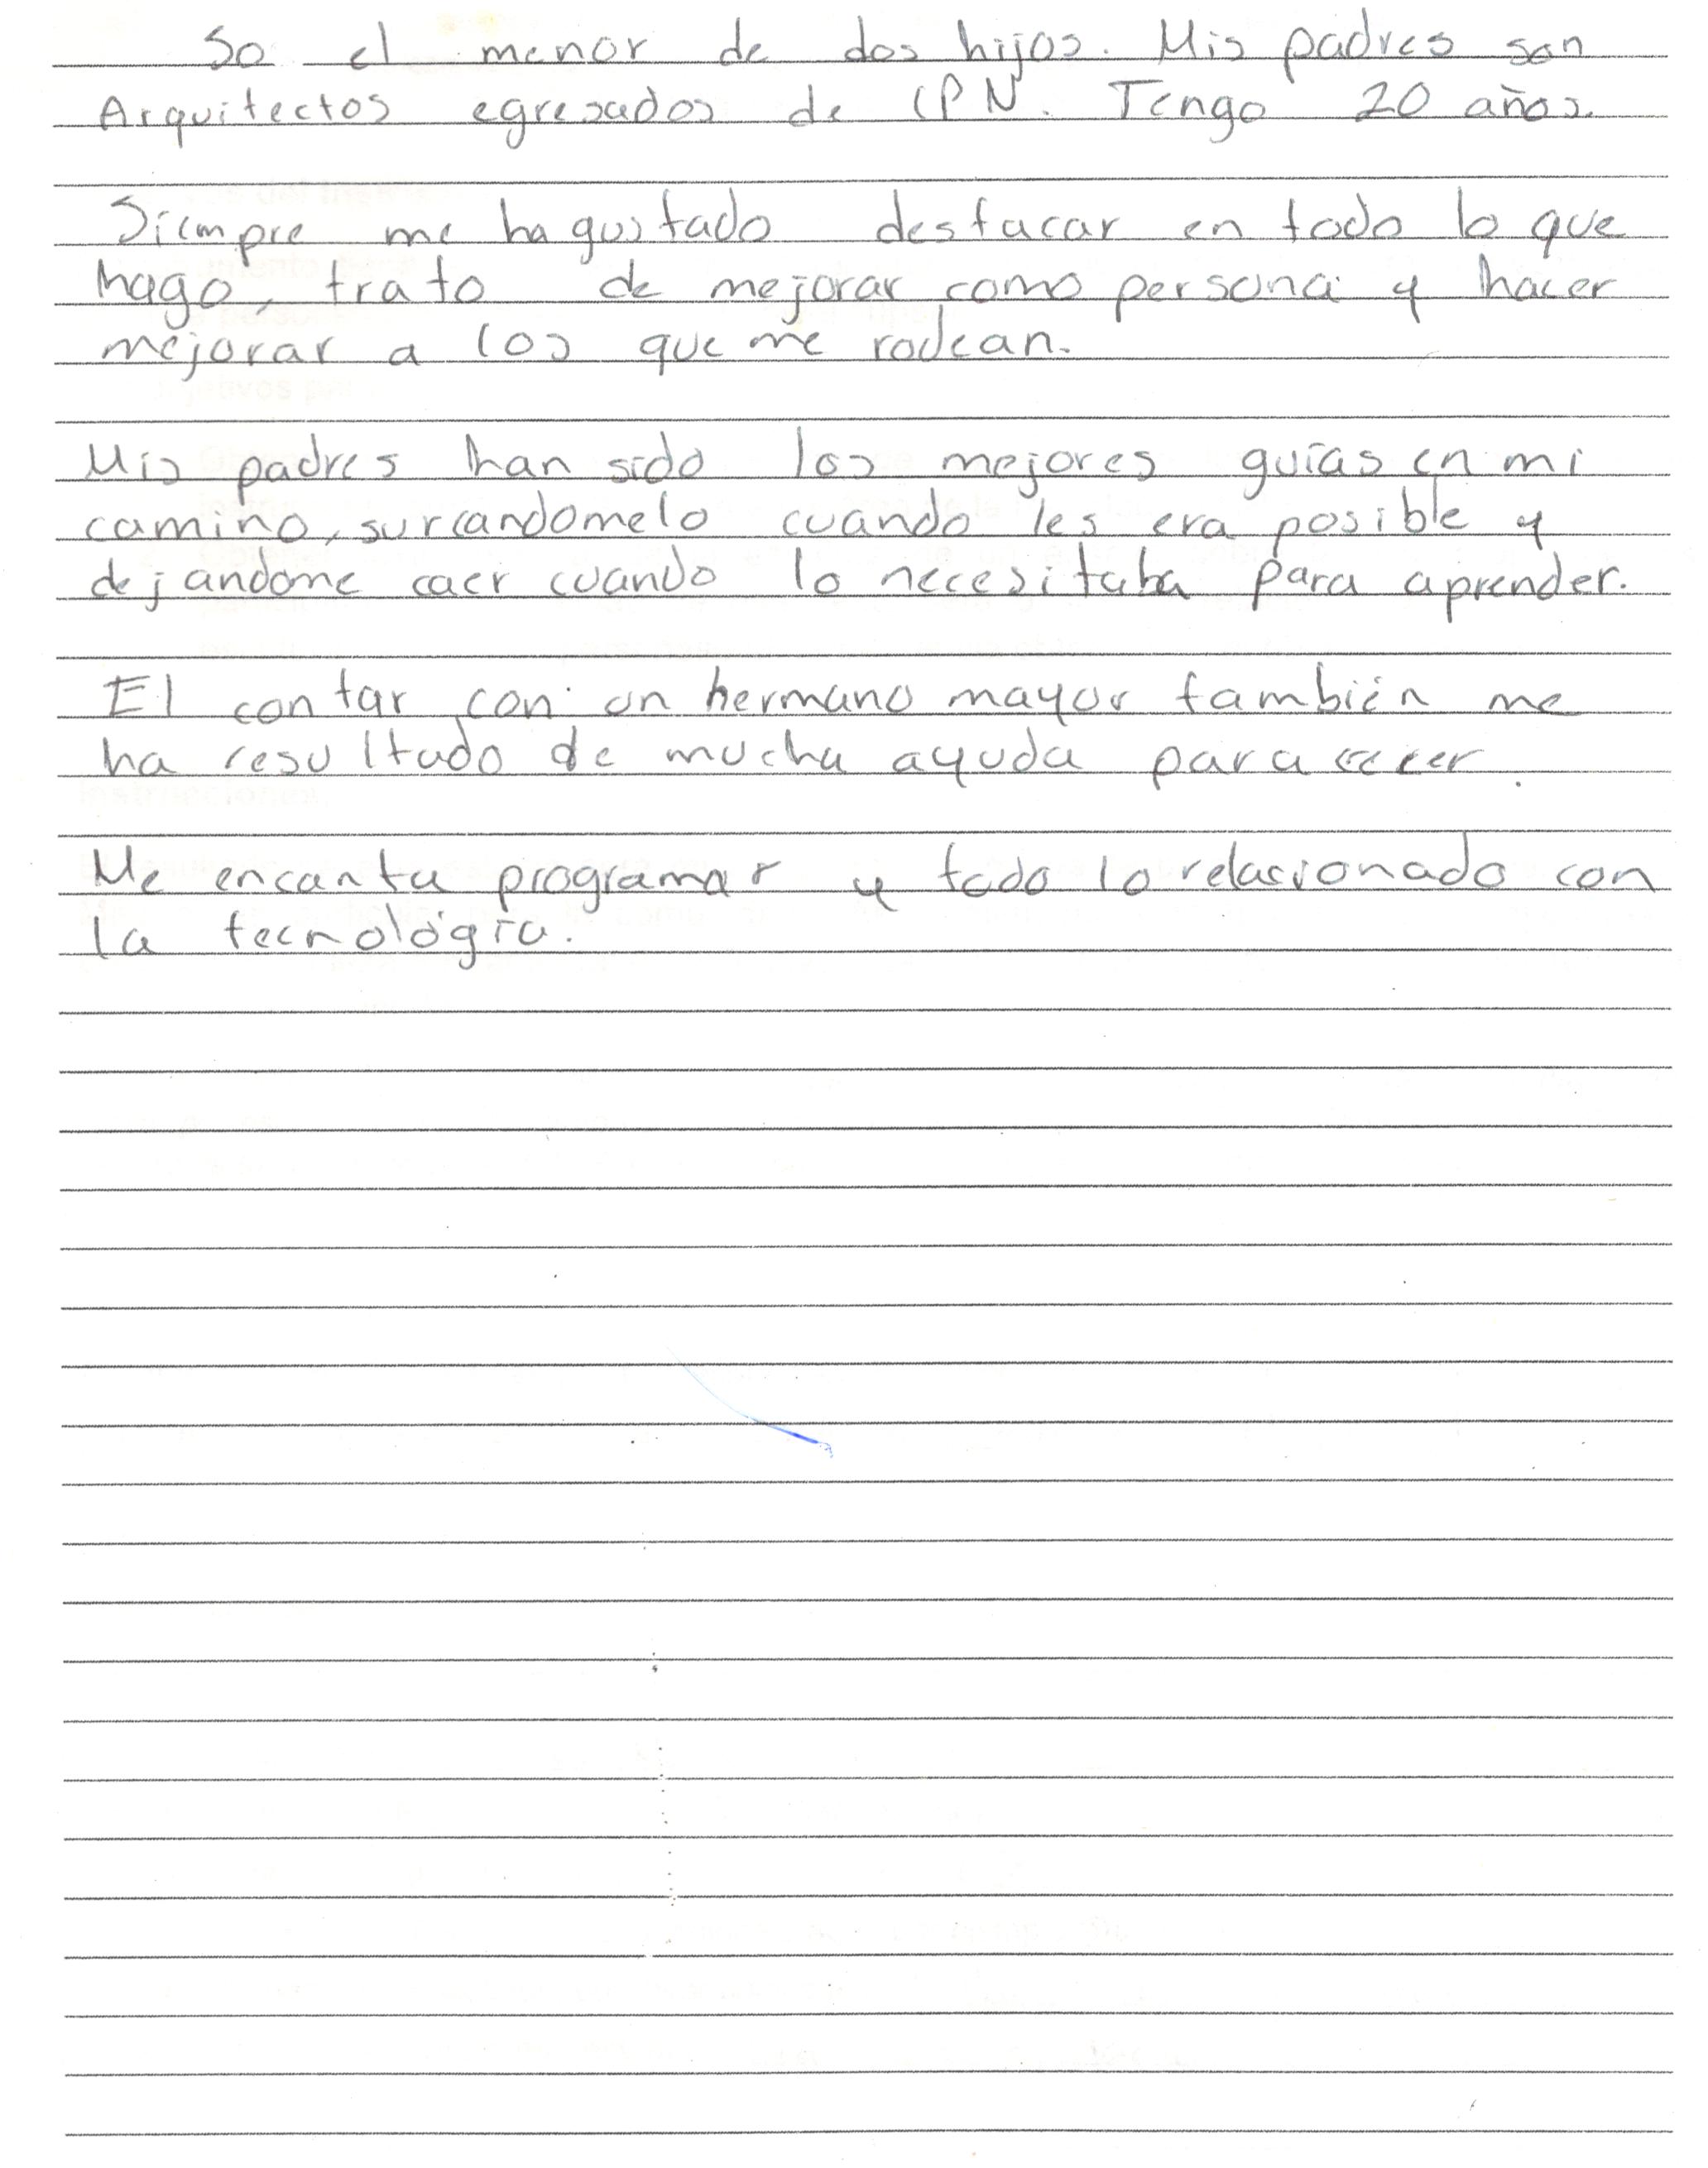 So el menor de dos hijos. Mis padres son
Arquitectos egresados de IPN. Tengo 20 años.
Siempre me ha gustado destacar en todo lo que
hago, trato de mejorar como persona y hacer
mejorar a los que me rodean.
Mis padres han sido los mejores guías en mi
camino, surcandomelo cuando les era posible y
dejandome caer cuando lo necesitaba para aprender.
El contar con un hermano mayor también me
ha resultado de mucha ayuda para
Me encanta programar y todo lo relacionado con
la tecnología.